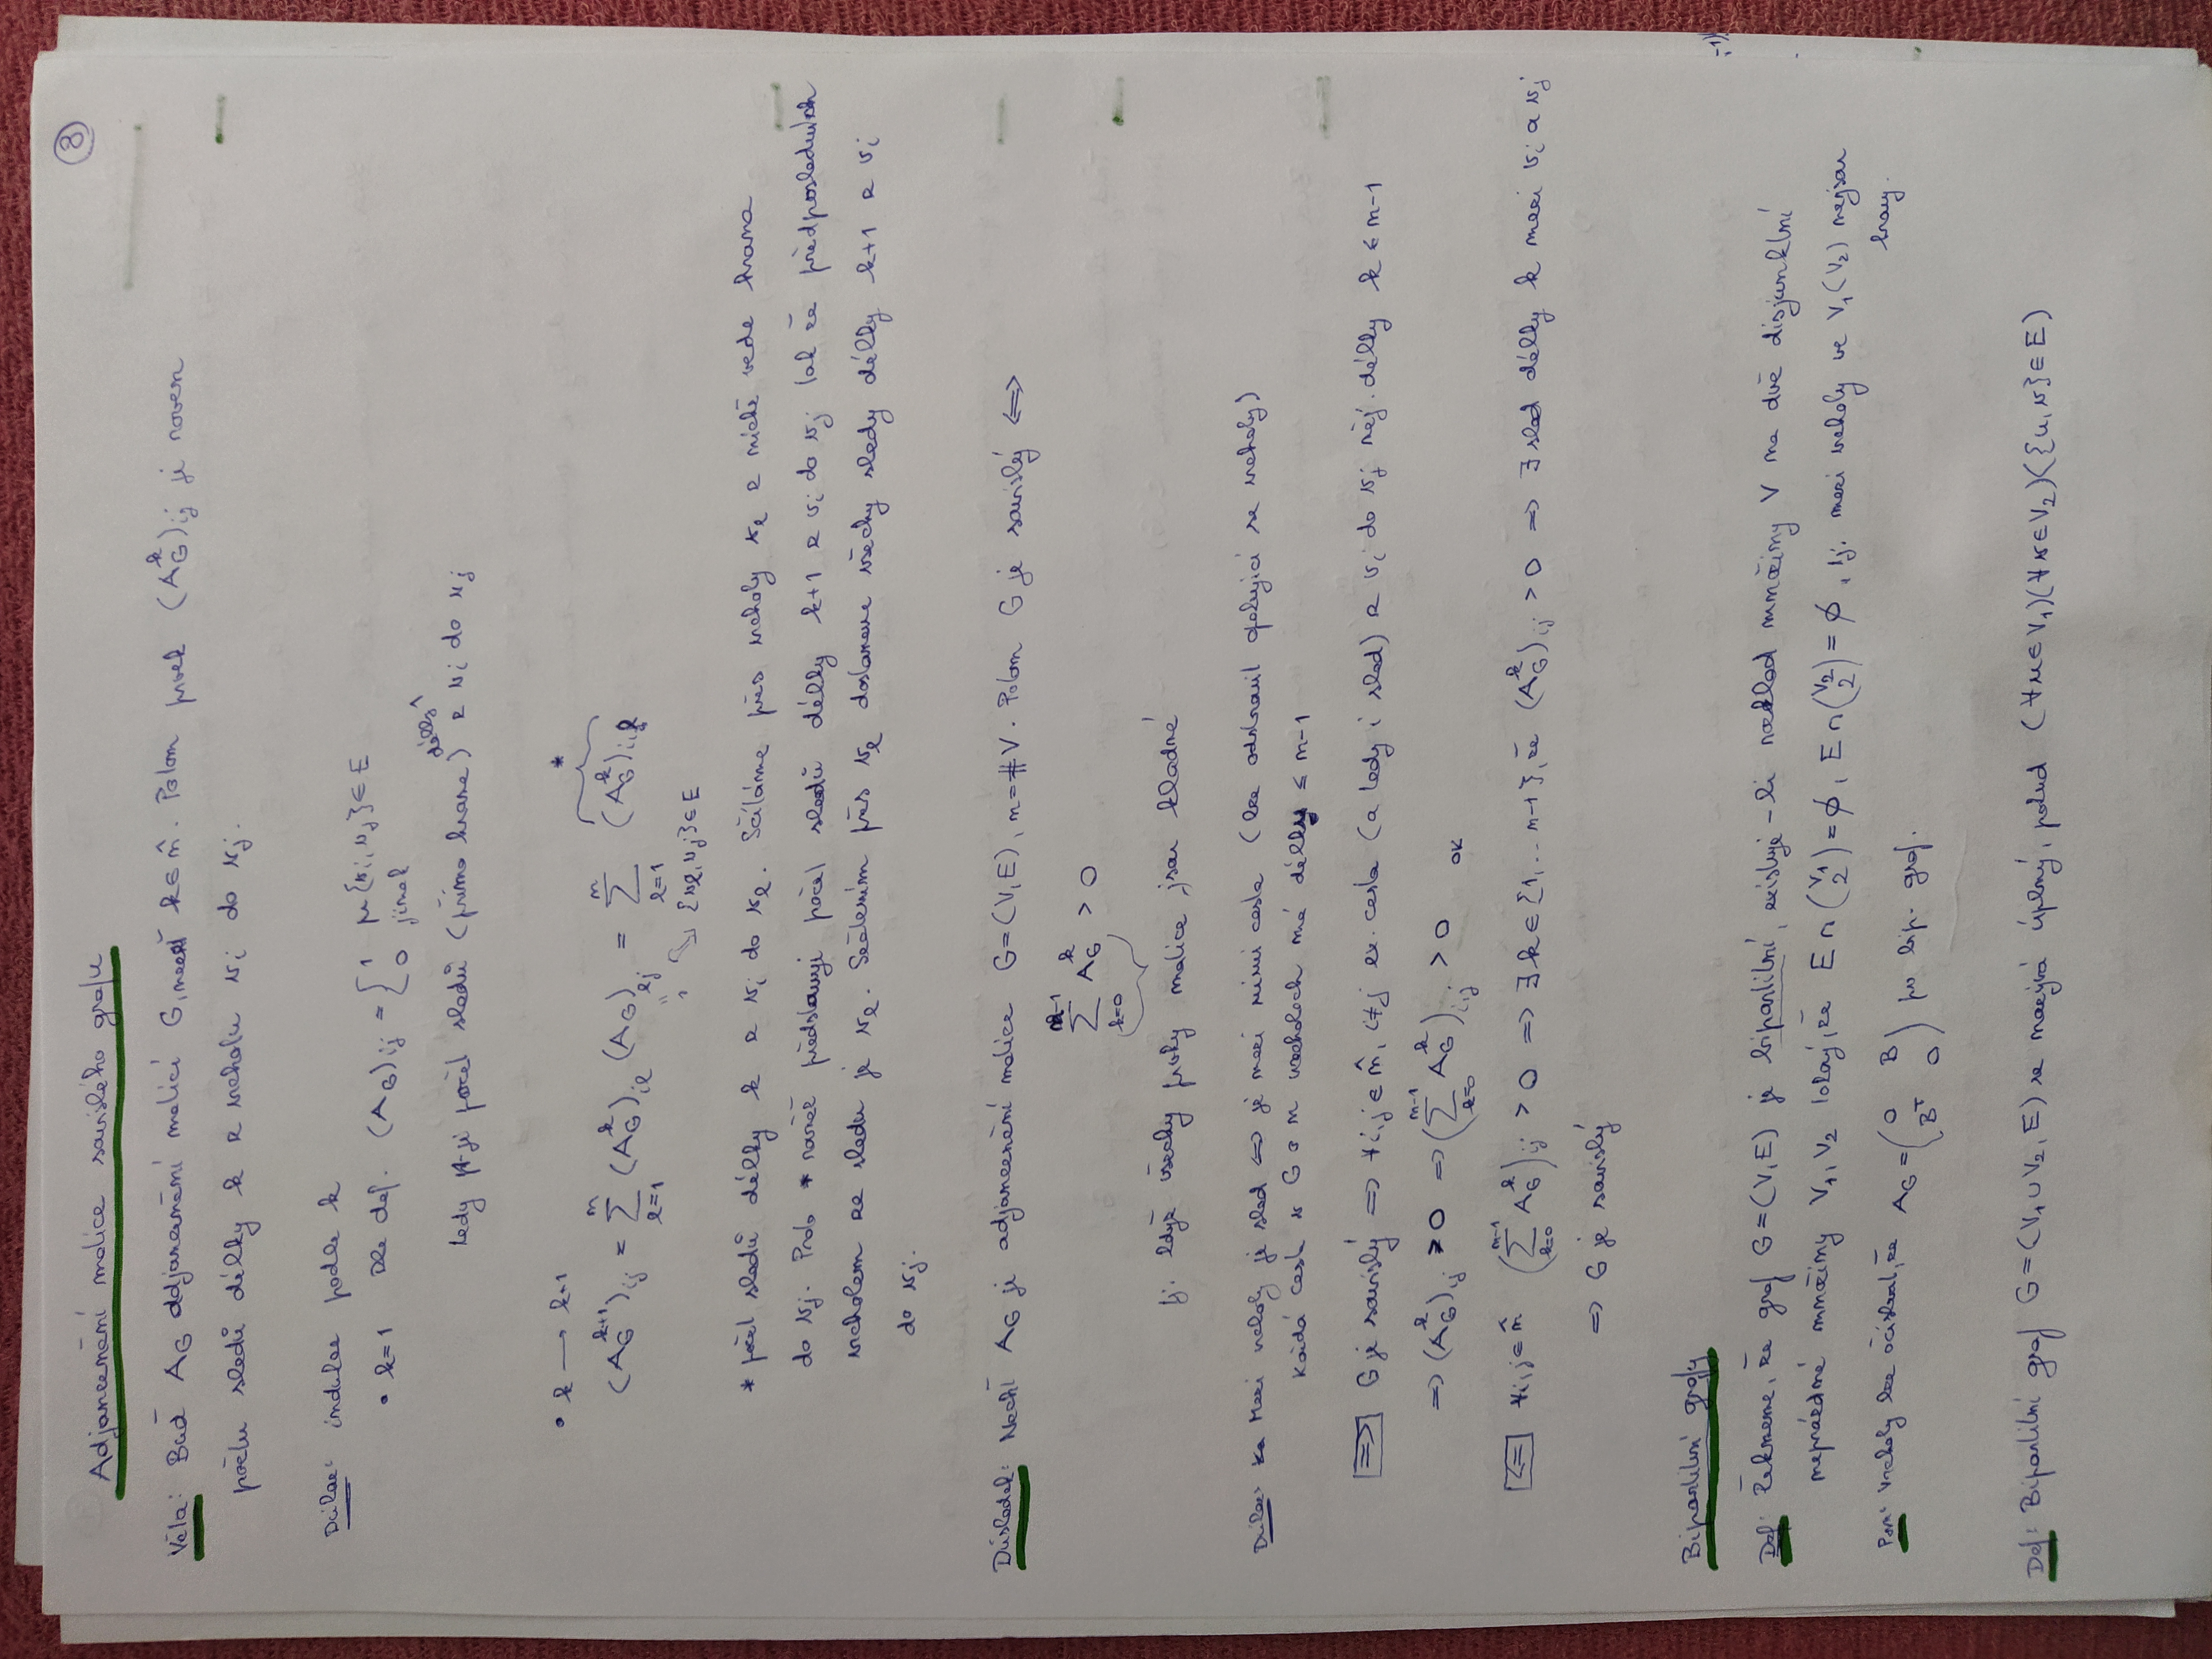 8
Adjancenční matice souvislého grafu
Věta: Buď AG adjancenční maticí G, k∈n̂. Potom prvek (A_G^k)ij je roven
počtu sledů délky k z vrcholu vi do vj.
Důkaz: indukce podle k
• k=1 Dle def. (AG)ij = { 1 pr {vi,vj}∈E
0 jinak
tedy počet sledů (přímo hrane) délky 1 z vi do vj
• k → k+1
*
(A_G^{k+1})ij = Σ_{l=1}^{n} (A_G^k)il (AG)lj = Σ_{l=1}^{n} (A_G^k)il
{vl,vj}∈E
* počet sledů délky k z vi do vl. Sčítáme přes vrcholy vl z nichž vede hrana
do vj. Proto * navíc představuje počet sledů délky k+1 z vi do vj tak že předposledním
vrcholem ze sledu je vl. Sečtením přes vl dostaneme všechny sledy délky k+1 z vi
do vj.
Důsledek: Nechť AG je adjancenční matice G=(V,E), n=#V. Potom G je souvislý ⟺
Σ_{k=0}^{n-1} A_G^k > 0
tj. když všechny prvky matice jsou kladné
Důkaz: Mezi vrcholy je sled ⟺ je mezi nimi cesta (lze odstranit opakující se vrcholy)
Každá cesta v G o n vrcholech má délku ≤ n-1
⟹ G je souvislý ⟹ ∀i,j∈n̂, i≠j ex. cesta (a tedy i sled) z vi do vj něj. délky k ≤ n-1
⟹ (A_G^k)ij > 0 ⟹ (Σ_{k=0}^{n-1} A_G^k)ij > 0 OK
⟸ ∀i,j∈n̂ (Σ_{k=0}^{n-1} A_G^k)ij > 0 ⟹ ∃k∈{1,...n-1}, že (A_G^k)ij > 0 ⟹ ∃ sled délky k mezi vi a vj
⟹ G je souvislý
Bipartitní grafy
Def: Řekneme, že graf G=(V,E) je bipartitní, existuje-li rozklad množiny V na dvě disjunktní
neprázdné množiny V1,V2 takový, že E∩(V1 2)=∅, E∩(V2 2)=∅, tj. mezi vrcholy ve V1(V2) nejsou
hrany.
Pozn: Vrcholy lze očíslovat, že AG = (0 B
B^T 0) pro bip. graf.
Def: Bipartitní graf G=(V1∪V2,E) se nazývá úplný, pokud (∀u∈V1)(∀v∈V2)({u,v}∈E)